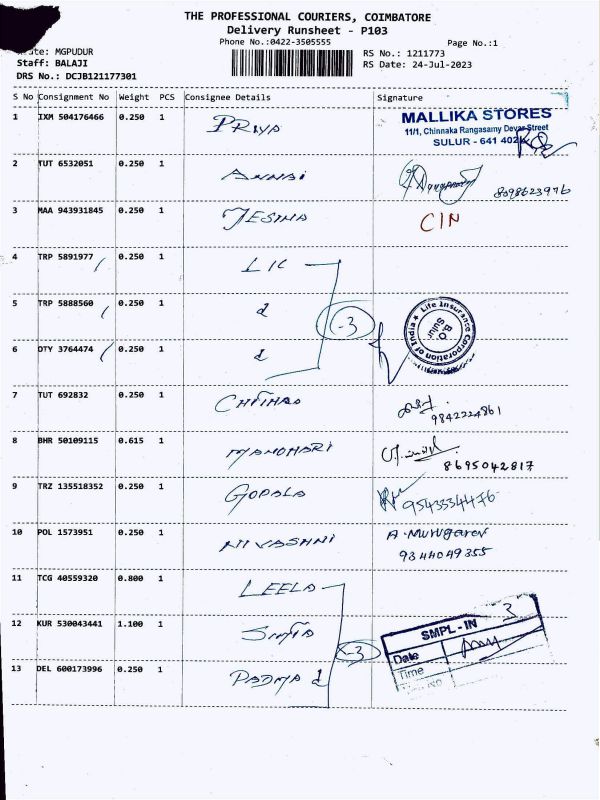 THE PROFESSIONAL COURIERS, COIMBATORE
Delivery Runsheet - P103
Phone No.:0422-3505555 Page No.:1
MGPUDUR RS No.: 1211773
Staff: BALAJI RS Date: 24-Jul-2023
DRS No.: DCJB121177301
S No Consignment No Weight PCS Consignee Details Signature
1 IXM 504176466 0.250 1 PRIYA MALLIKA STORES
11/1, Chinnaka Rangasamy Devar Street
SULUR - 641 402
2 TUT 6532051 0.250 1 ANNAI 8098623976
3 MAA 943931845 0.250 1 JESIMA CIN
4 TRP 5891977 0.250 1 LIC
5 TRP 5888560 0.250 1 -3 Life Insurance Corporation of India B.O Sulur
6 OTY 3764474 0.250 1
7 TUT 692832 0.250 1 9842224861
8 BHR 50109115 0.615 1 MANOHARI 8695042817
9 TRZ 135518352 0.250 1 GOPALA 9543334476
10 POL 1573951 0.250 1 NIVASHNI A. Murugavev
9344049355
11 TCG 40559320 0.800 1 LEELA
12 KUR 530043441 1.100 1 -3 SMPL - IN 3
Date
13 DEL 600173996 0.250 1 PADMA Time